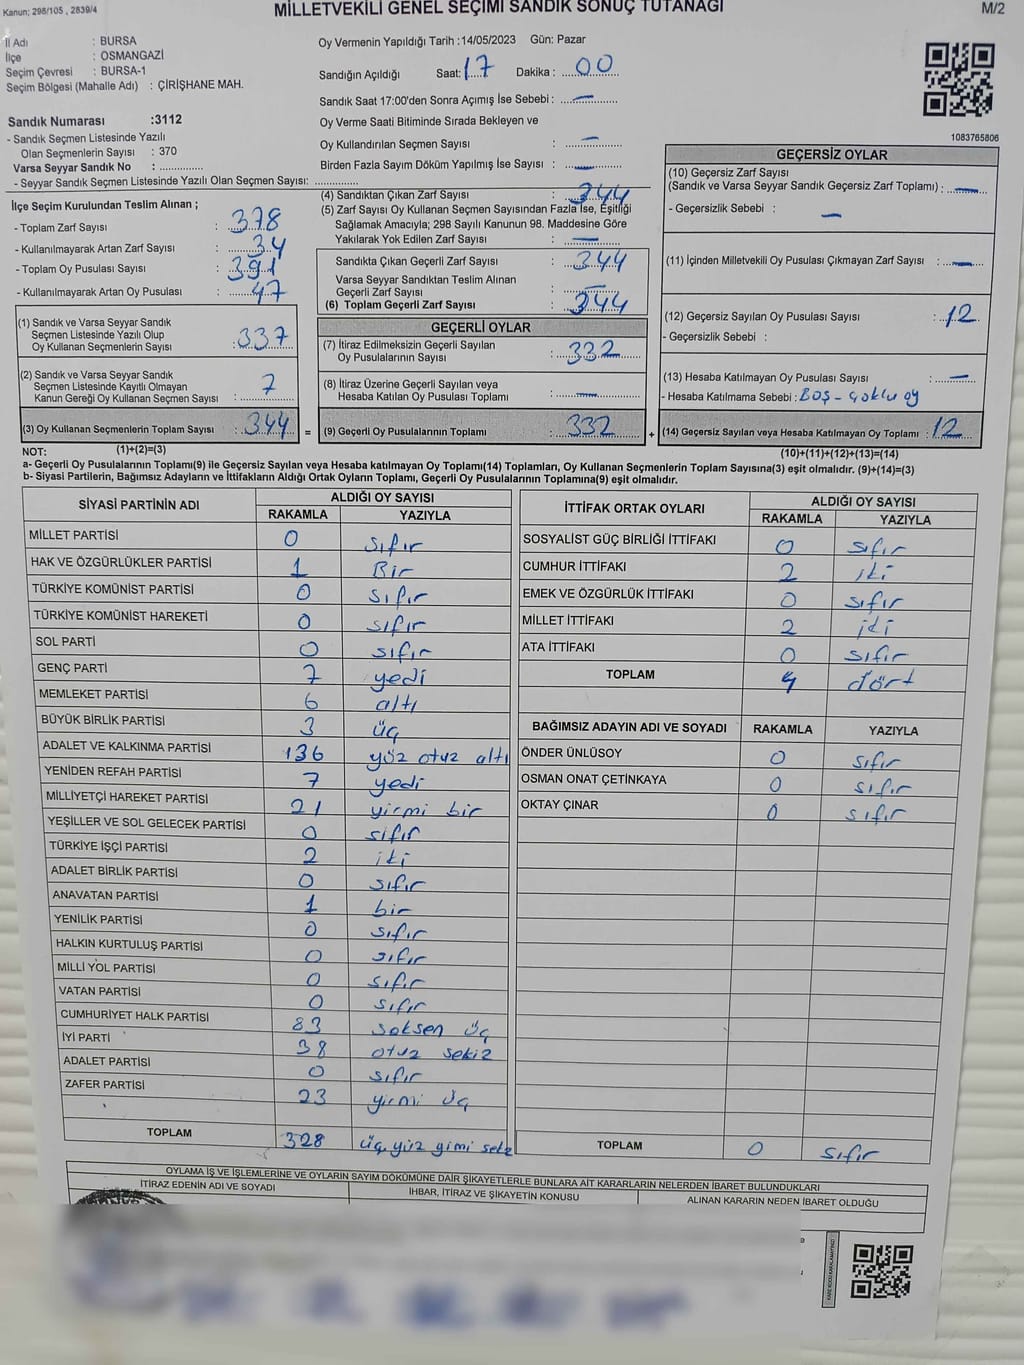 Kanun; 298/105 , 2839/4
MİLLETVEKİLİ GENEL SEÇİMİ SANDIK SONUÇ TUTANAĞI
M/2
İl Adı : BURSA
İlçe : OSMANGAZİ
Seçim Çevresi : BURSA-1
Seçim Bölgesi (Mahalle Adı) : ÇİRİŞHANE MAH.
Oy Vermenin Yapıldığı Tarih :14/05/2023 Gün: Pazar
Sandığın Açıldığı Saat: 17 Dakika : 00
Sandık Saat 17:00'den Sonra Açımış İse Sebebi : —
Oy Verme Saati Bitiminde Sırada Bekleyen ve
Oy Kullandırılan Seçmen Sayısı : —
Birden Fazla Sayım Döküm Yapılmış İse Sayısı : —
1083765806
Sandık Numarası :3112
- Sandık Seçmen Listesinde Yazılı
Olan Seçmenlerin Sayısı : 370
Varsa Seyyar Sandık No :
- Seyyar Sandık Seçmen Listesinde Yazılı Olan Seçmen Sayısı:
İlçe Seçim Kurulundan Teslim Alınan ;
- Toplam Zarf Sayısı : 378
- Kullanılmayarak Artan Zarf Sayısı : 34
- Toplam Oy Pusulası Sayısı : 391
- Kullanılmayarak Artan Oy Pusulası : 47
(1) Sandık ve Varsa Seyyar Sandık
Seçmen Listesinde Yazılı Olup
Oy Kullanan Seçmenlerin Sayısı : 337
(2) Sandık ve Varsa Seyyar Sandık
Seçmen Listesinde Kayıtlı Olmayan
Kanun Gereği Oy Kullanan Seçmen Sayısı : 7
(3) Oy Kullanan Seçmenlerin Toplam Sayısı : 344 =
(4) Sandıktan Çıkan Zarf Sayısı : 344
(5) Zarf Sayısı Oy Kullanan Seçmen Sayısından Fazla İse, Eşitliği
Sağlamak Amacıyla; 298 Sayılı Kanunun 98. Maddesine Göre
Yakılarak Yok Edilen Zarf Sayısı : —
Sandıkta Çıkan Geçerli Zarf Sayısı : 344
Varsa Seyyar Sandıktan Teslim Alınan
Geçerli Zarf Sayısı : —
(6) Toplam Geçerli Zarf Sayısı : 344
GEÇERLİ OYLAR
(7) İtiraz Edilmeksizin Geçerli Sayılan
Oy Pusulalarının Sayısı : 332
(8) İtiraz Üzerine Geçerli Sayılan veya
Hesaba Katılan Oy Pusulası Toplamı : —
(9) Geçerli Oy Pusulalarının Toplamı : 332 +
GEÇERSİZ OYLAR
(10) Geçersiz Zarf Sayısı
(Sandık ve Varsa Seyyar Sandık Geçersiz Zarf Toplamı) : —
- Geçersizlik Sebebi : —
(11) İçinden Milletvekili Oy Pusulası Çıkmayan Zarf Sayısı : —
(12) Geçersiz Sayılan Oy Pusulası Sayısı : 12
- Geçersizlik Sebebi :
(13) Hesaba Katılmayan Oy Pusulası Sayısı : —
- Hesaba Katılmama Sebebi : Boş - çoklu oy
(14) Geçersiz Sayılan veya Hesaba Katılmayan Oy Toplamı : 12
NOT: (1)+(2)=(3) (10)+(11)+(12)+(13)=(14)
a- Geçerli Oy Pusulalarının Toplamı(9) ile Geçersiz Sayılan veya Hesaba katılmayan Oy Toplamı(14) Toplamları, Oy Kullanan Seçmenlerin Toplam Sayısına(3) eşit olmalıdır. (9)+(14)=(3)
b- Siyasi Partilerin, Bağımsız Adayların ve İttifakların Aldığı Ortak Oyların Toplamı, Geçerli Oy Pusulalarının Toplamına(9) eşit olmalıdır.
SİYASİ PARTİNİN ADI ALDIĞI OY SAYISI
RAKAMLA YAZIYLA
MİLLET PARTİSİ 0 sıfır
HAK VE ÖZGÜRLÜKLER PARTİSİ 1 Bir
TÜRKİYE KOMÜNİST PARTİSİ 0 sıfır
TÜRKİYE KOMÜNİST HAREKETİ 0 sıfır
SOL PARTİ 0 sıfır
GENÇ PARTİ 7 yedi
MEMLEKET PARTİSİ 6 altı
BÜYÜK BİRLİK PARTİSİ 3 üç
ADALET VE KALKINMA PARTİSİ 136 yüz otuz altı
YENİDEN REFAH PARTİSİ 7 yedi
MİLLİYETÇİ HAREKET PARTİSİ 21 yirmi bir
YEŞİLLER VE SOL GELECEK PARTİSİ 0 sıfır
TÜRKİYE İŞÇİ PARTİSİ 2 iki
ADALET BİRLİK PARTİSİ 0 sıfır
ANAVATAN PARTİSİ 1 bir
YENİLİK PARTİSİ 0 sıfır
HALKIN KURTULUŞ PARTİSİ 0 sıfır
MİLLİ YOL PARTİSİ 0 sıfır
VATAN PARTİSİ 0 sıfır
CUMHURİYET HALK PARTİSİ 83 seksen üç
İYİ PARTİ 38 otuz sekiz
ADALET PARTİSİ 0 sıfır
ZAFER PARTİSİ 23 yirmi üç
TOPLAM 328 üç yüz yirmi sekiz
İTTİFAK ORTAK OYLARI ALDIĞI OY SAYISI
RAKAMLA YAZIYLA
SOSYALİST GÜÇ BİRLİĞİ İTTİFAKI 0 sıfır
CUMHUR İTTİFAKI 2 iki
EMEK VE ÖZGÜRLÜK İTTİFAKI 0 sıfır
MİLLET İTTİFAKI 2 iki
ATA İTTİFAKI 0 sıfır
TOPLAM 4 dört
BAĞIMSIZ ADAYIN ADI VE SOYADI RAKAMLA YAZIYLA
ÖNDER ÜNLÜSOY 0 sıfır
OSMAN ONAT ÇETİNKAYA 0 sıfır
OKTAY ÇINAR 0 sıfır
TOPLAM 0 sıfır
OYLAMA İŞ VE İŞLEMLERİNE VE OYLARIN SAYIM DÖKÜMÜNE DAİR ŞİKAYETLERLE BUNLARA AİT KARARLARIN NELERDEN İBARET BULUNDUKLARI
İTİRAZ EDENİN ADI VE SOYADI İHBAR, İTİRAZ VE ŞİKAYETİN KONUSU ALINAN KARARIN NEDEN İBARET OLDUĞU